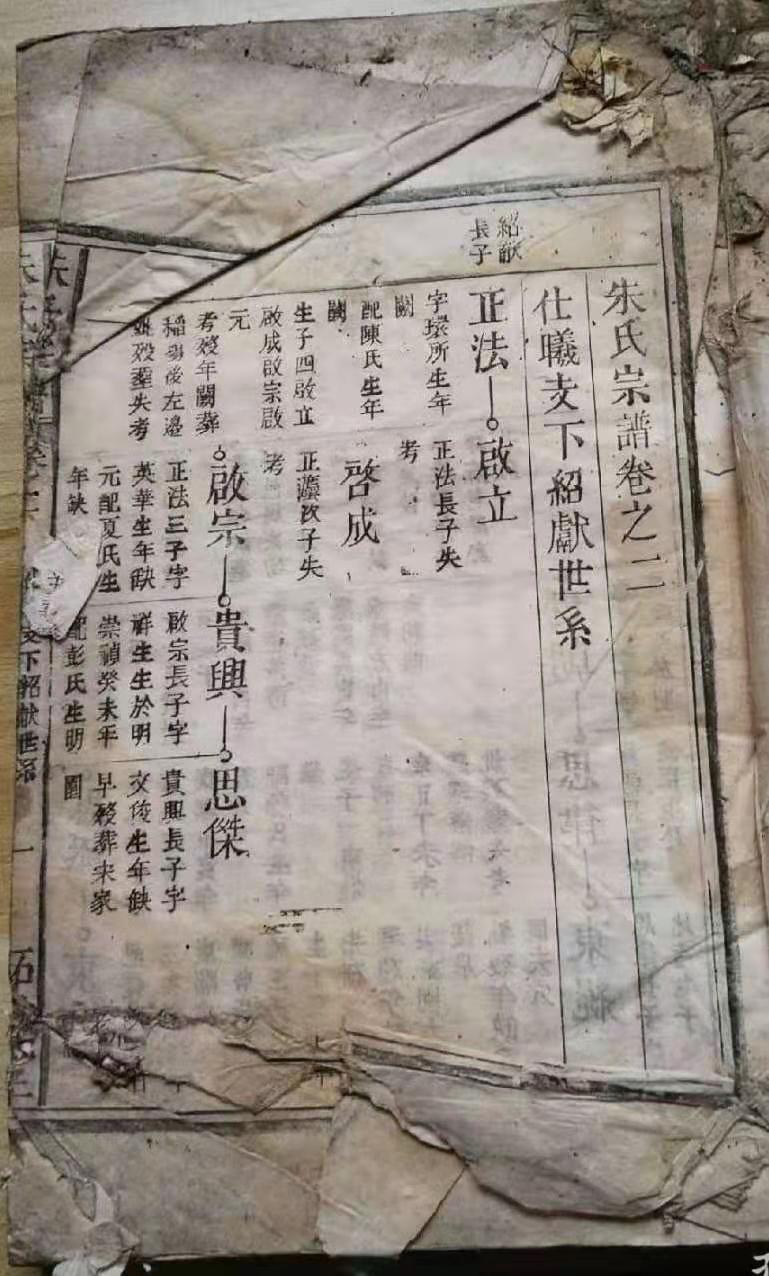 朱氏宗譜卷之二
仕曦支下紹獻世系
紹獻
長子
正法
啟立
字環所生年
闕
配陳氏生年
闕
生子四啟立
啟成啟宗啟
元
考殁年闕葬
後左邊
失考
正法長子失
考
啓成
正法次子失
考
啟宗
貴興
思傑
正法三子字
英華生年缺
元配夏氏生
年缺
啟宗長子字
祥生生於明
崇禎癸未年
配彭氏生明
貴興長子字
文俊生年缺
早殁葬宋家
園
下紹獻世系
一